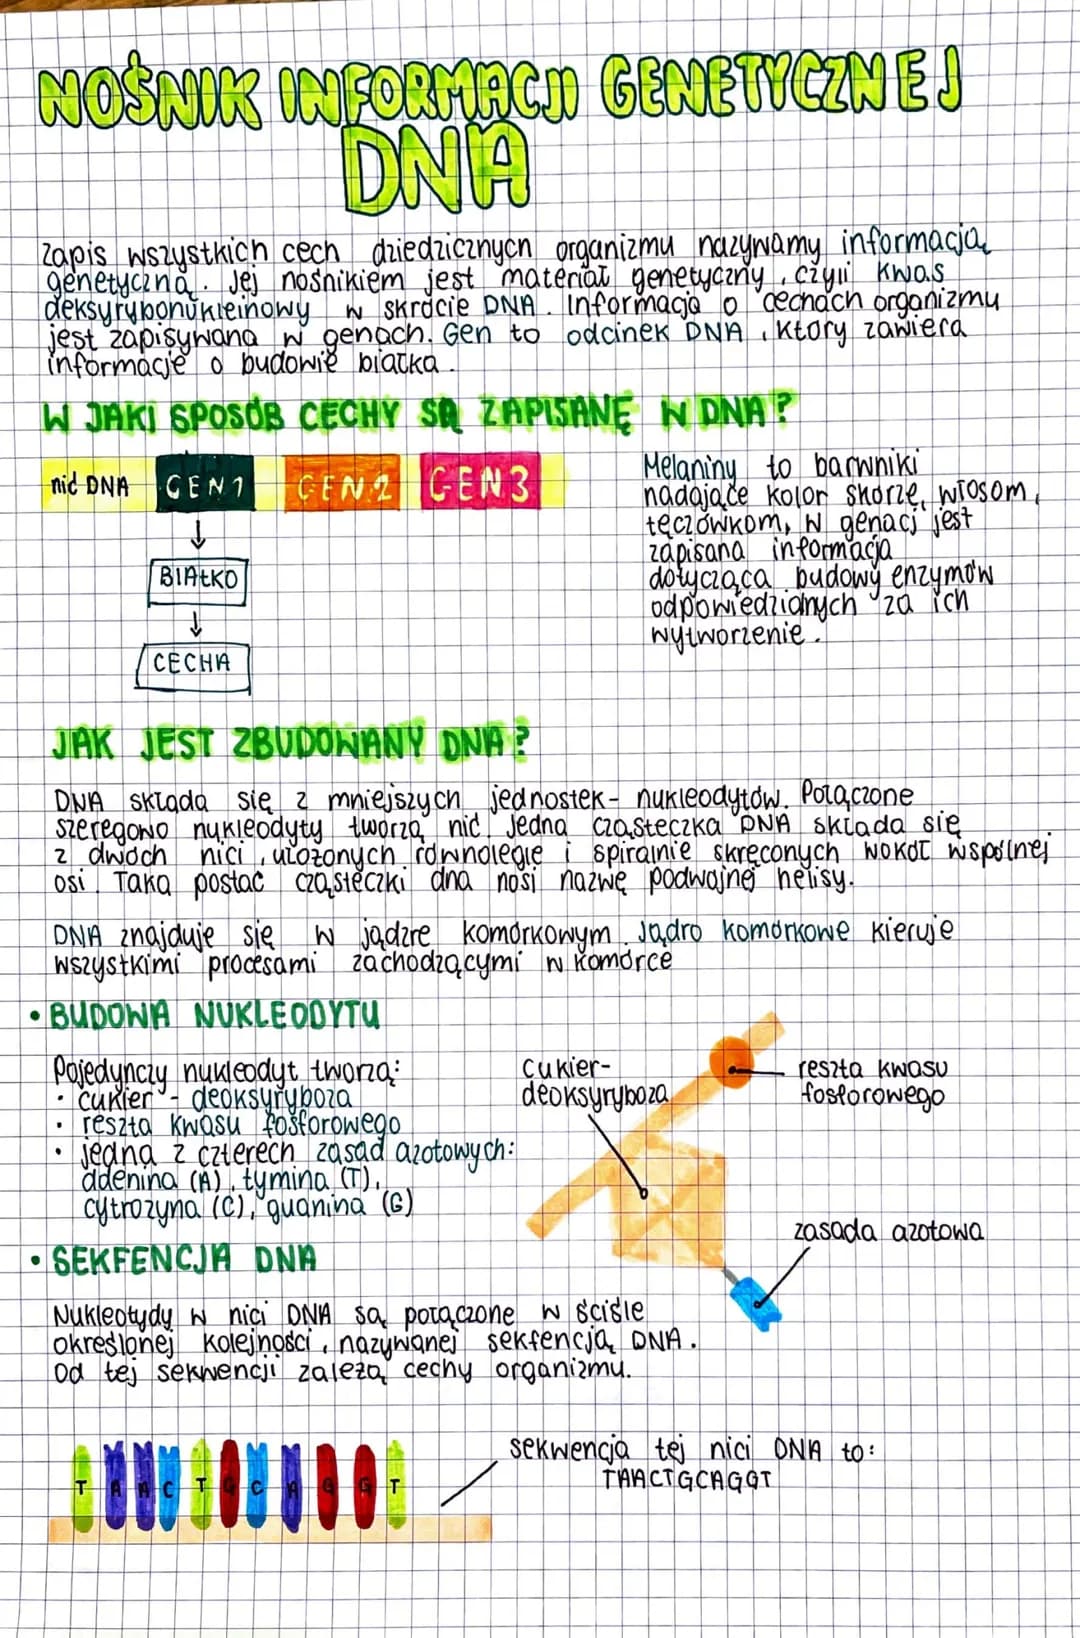 NOŚNIK INFORMACJI GENETYCZNEJ
DNA
Zapis wszystkich cech dziedzicznych organizmu nazywamy informacją
genetyczną. Jej nośnikiem jest materiał genetyczny, czyli kwas
deksyrybonukleinowy w skrócie DNA. Informacja o cechach organizmu
jest zapisywana w genach. Gen to odcinek DNA, który zawiera
informacje o budowie białka.
W JAKI SPOSÓB CECHY SĄ ZAPISANĘ W DNA?
nić DNA GEN 1 GEN 2 GEN 3
BIAŁKO
CECHA
Melaniny to barwniki
nadające kolor skórze, włosom,
tęczówkom, W genacj jest
zapisana informacja
dotycząca budowy enzymów
odpowiedzialnych za ich
wytworzenie.
JAK JEST ZBUDOWANY DNA?
DNA składa się z mniejszych jednostek- nukleodytów. Połączone
szeregowo nukleodyty tworzą nić. Jedna cząsteczka DNA składa się
z dwóch nici, ułożonych równolegle i spiralnie skręconych wokół wspólnej
osi. Taka postać cząsteczki dna nosi nazwę podwójnej helisy.
DNA znajduje się w jądzre komórkowym. Jądro komórkowe kieruje
wszystkimi procesami zachodzącymi w komórce
• BUDOWA NUKLEODYTU
Pojedynczy nukleodyt tworzą:
• cukier - deoksyryboza
• reszta kwasu fosforowego
• jedna z czterech zasad azotowych:
adenina (A), tymina (T),
cytrozyna (C), guanina (G)
cukier-
deoksyryboza
reszta kwasu
fosforowego
zasada azotowa
• SEKFENCJA DNA
Nukleotydy w nici DNA są połączone w ściśle
określonej kolejności, nazywanej sekfencją DNA.
Od tej sekwencji zależą cechy organizmu.
T A A C T G C A G G T
sekwencja tej nici DNA to:
TAACTGCAGGT